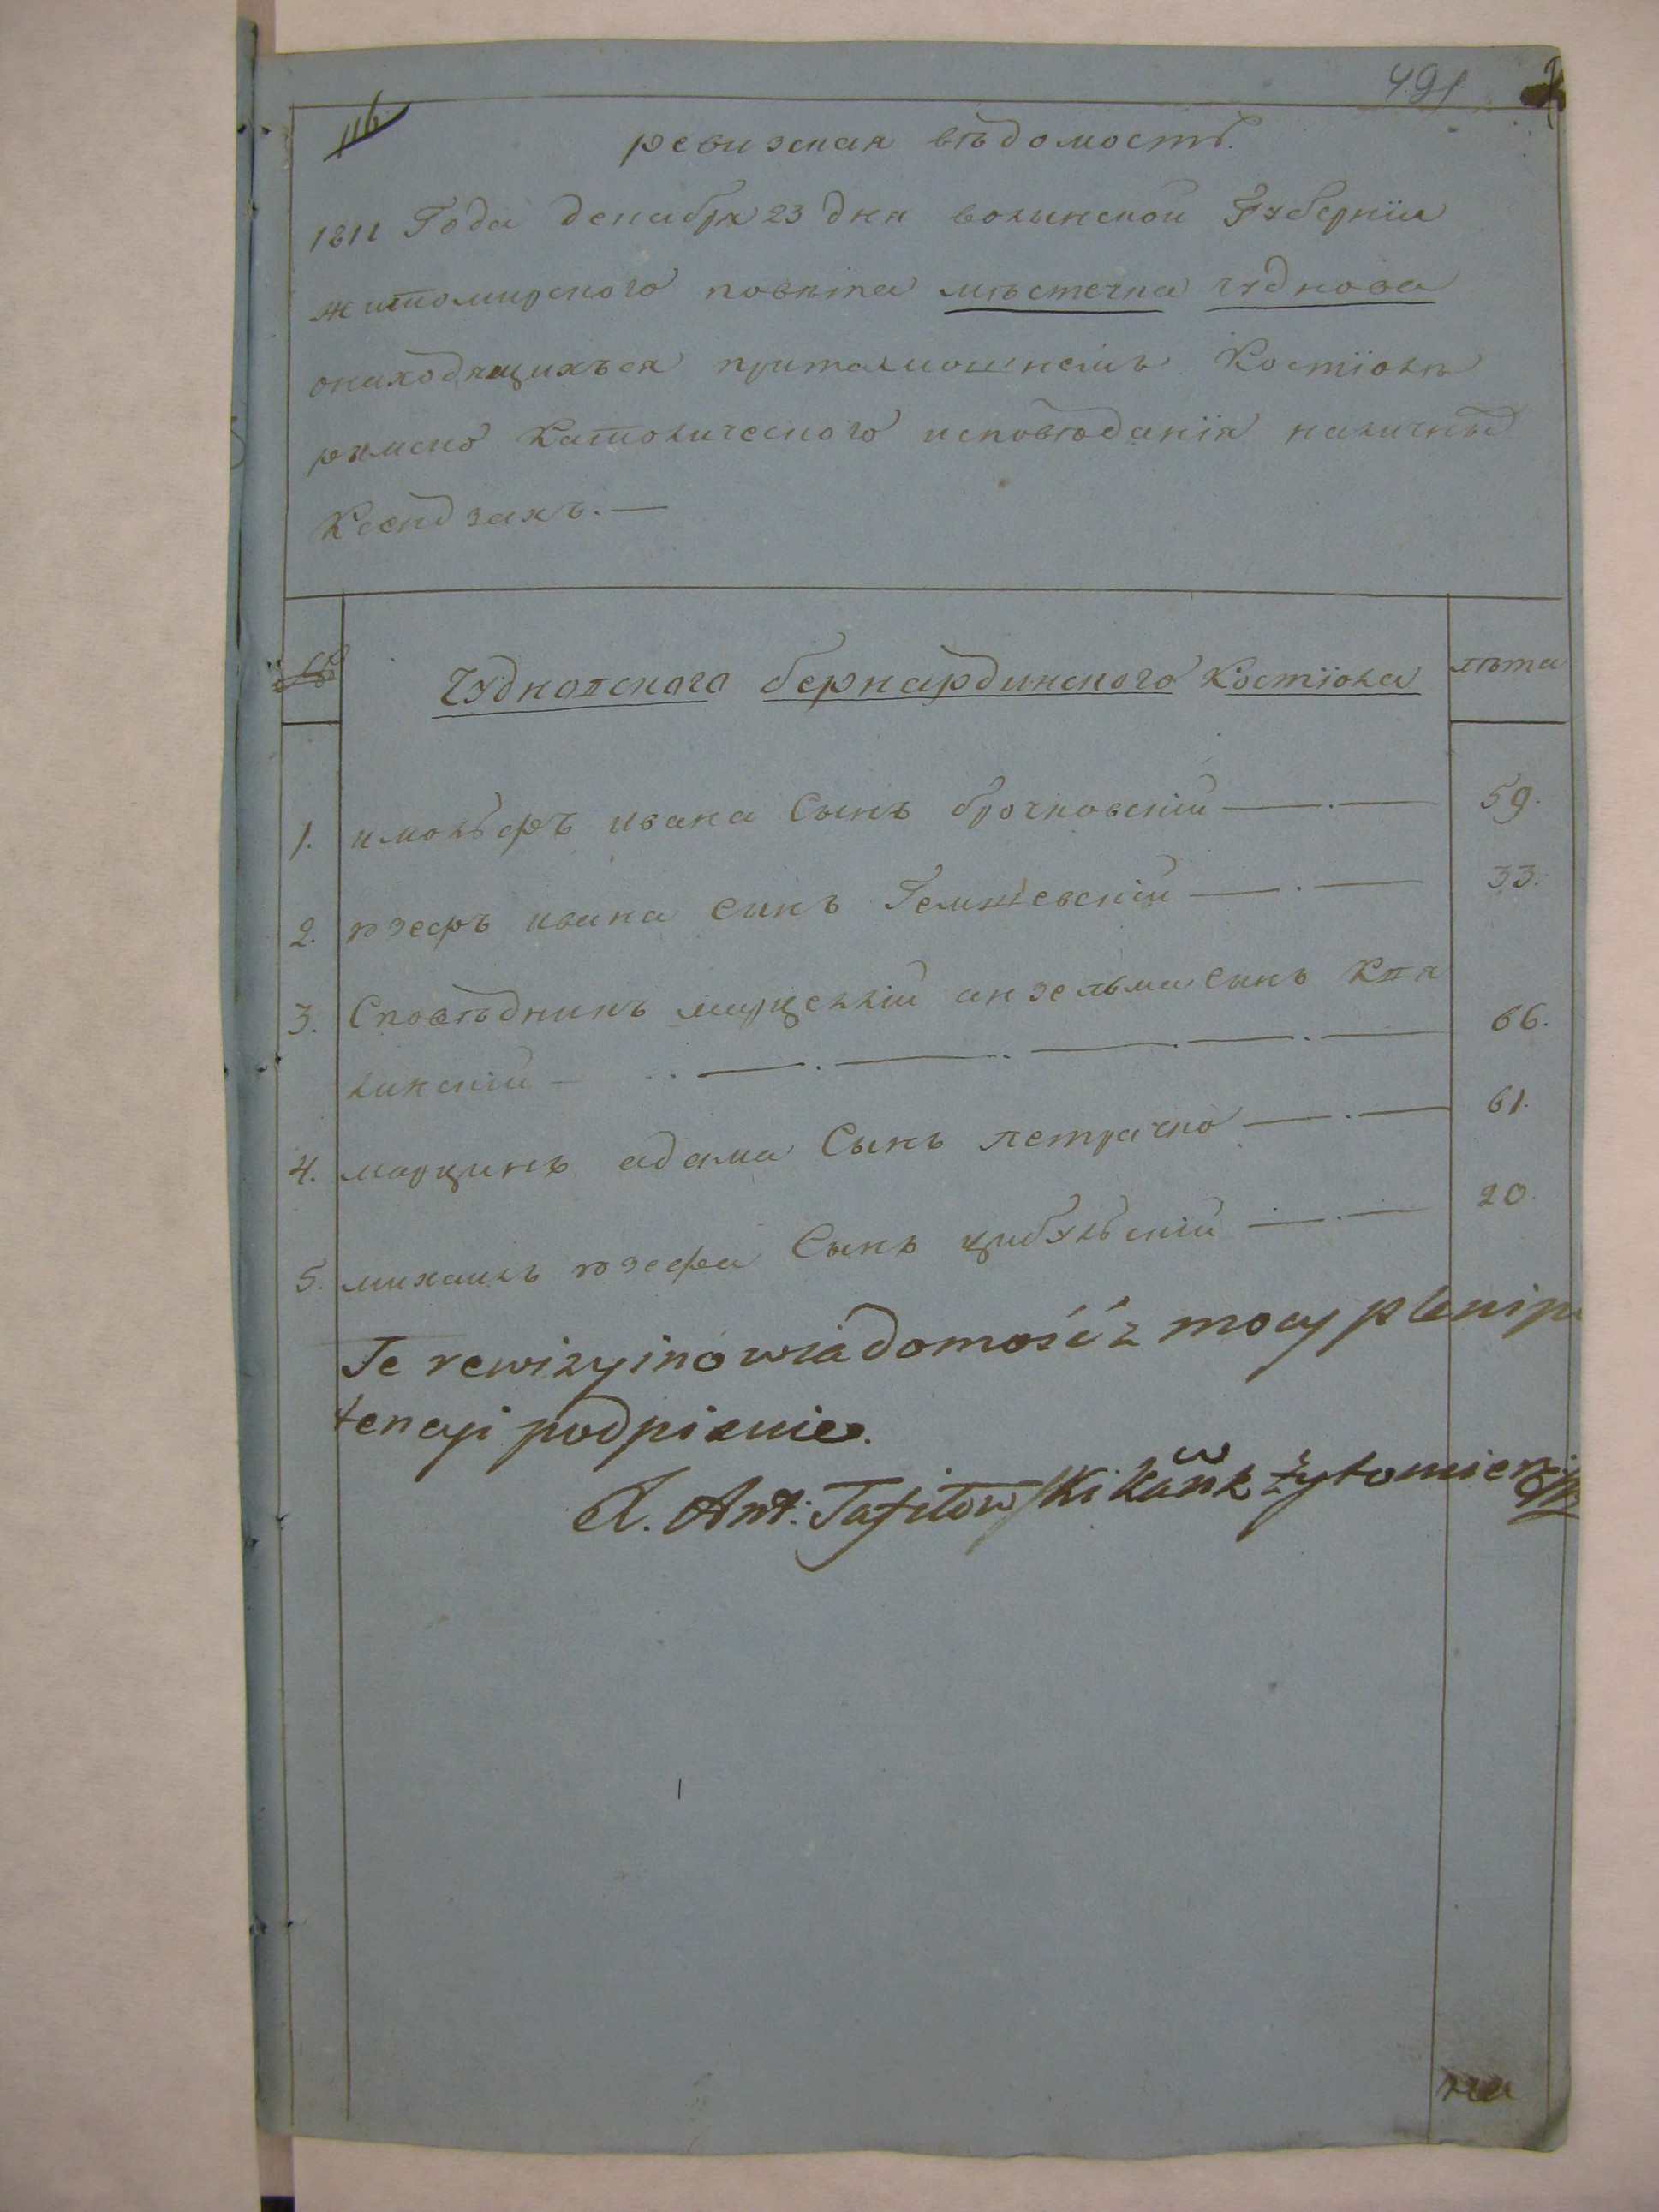 116.
491
ревизская вѣдомость.
1811 Года декабря 23 дня волынской Губернїи
житомирского повѣта мѣстечка чуднова
онаходящихъся притамошнемъ Костїолѣ
римско Католического исповѣданїя наличныхъ
Ксендзахъ. —
№ Чудновского бернардинского Костїола лѣта
1. ивана Сынъ брочковскїй 59.
2. юзефъ ивана Синъ 33.
3. Сповѣдникъ анзельма Синъ Кпя
линскїй — 66.
4. марцинъ адама Сынъ петрачко 61.
5. михаилъ юзефа Сынъ цибульскїй 20.
Te rewizyino wiadomość z mocy plenipo
tencyi podpisuie.
X. Ant: kan: żytomier